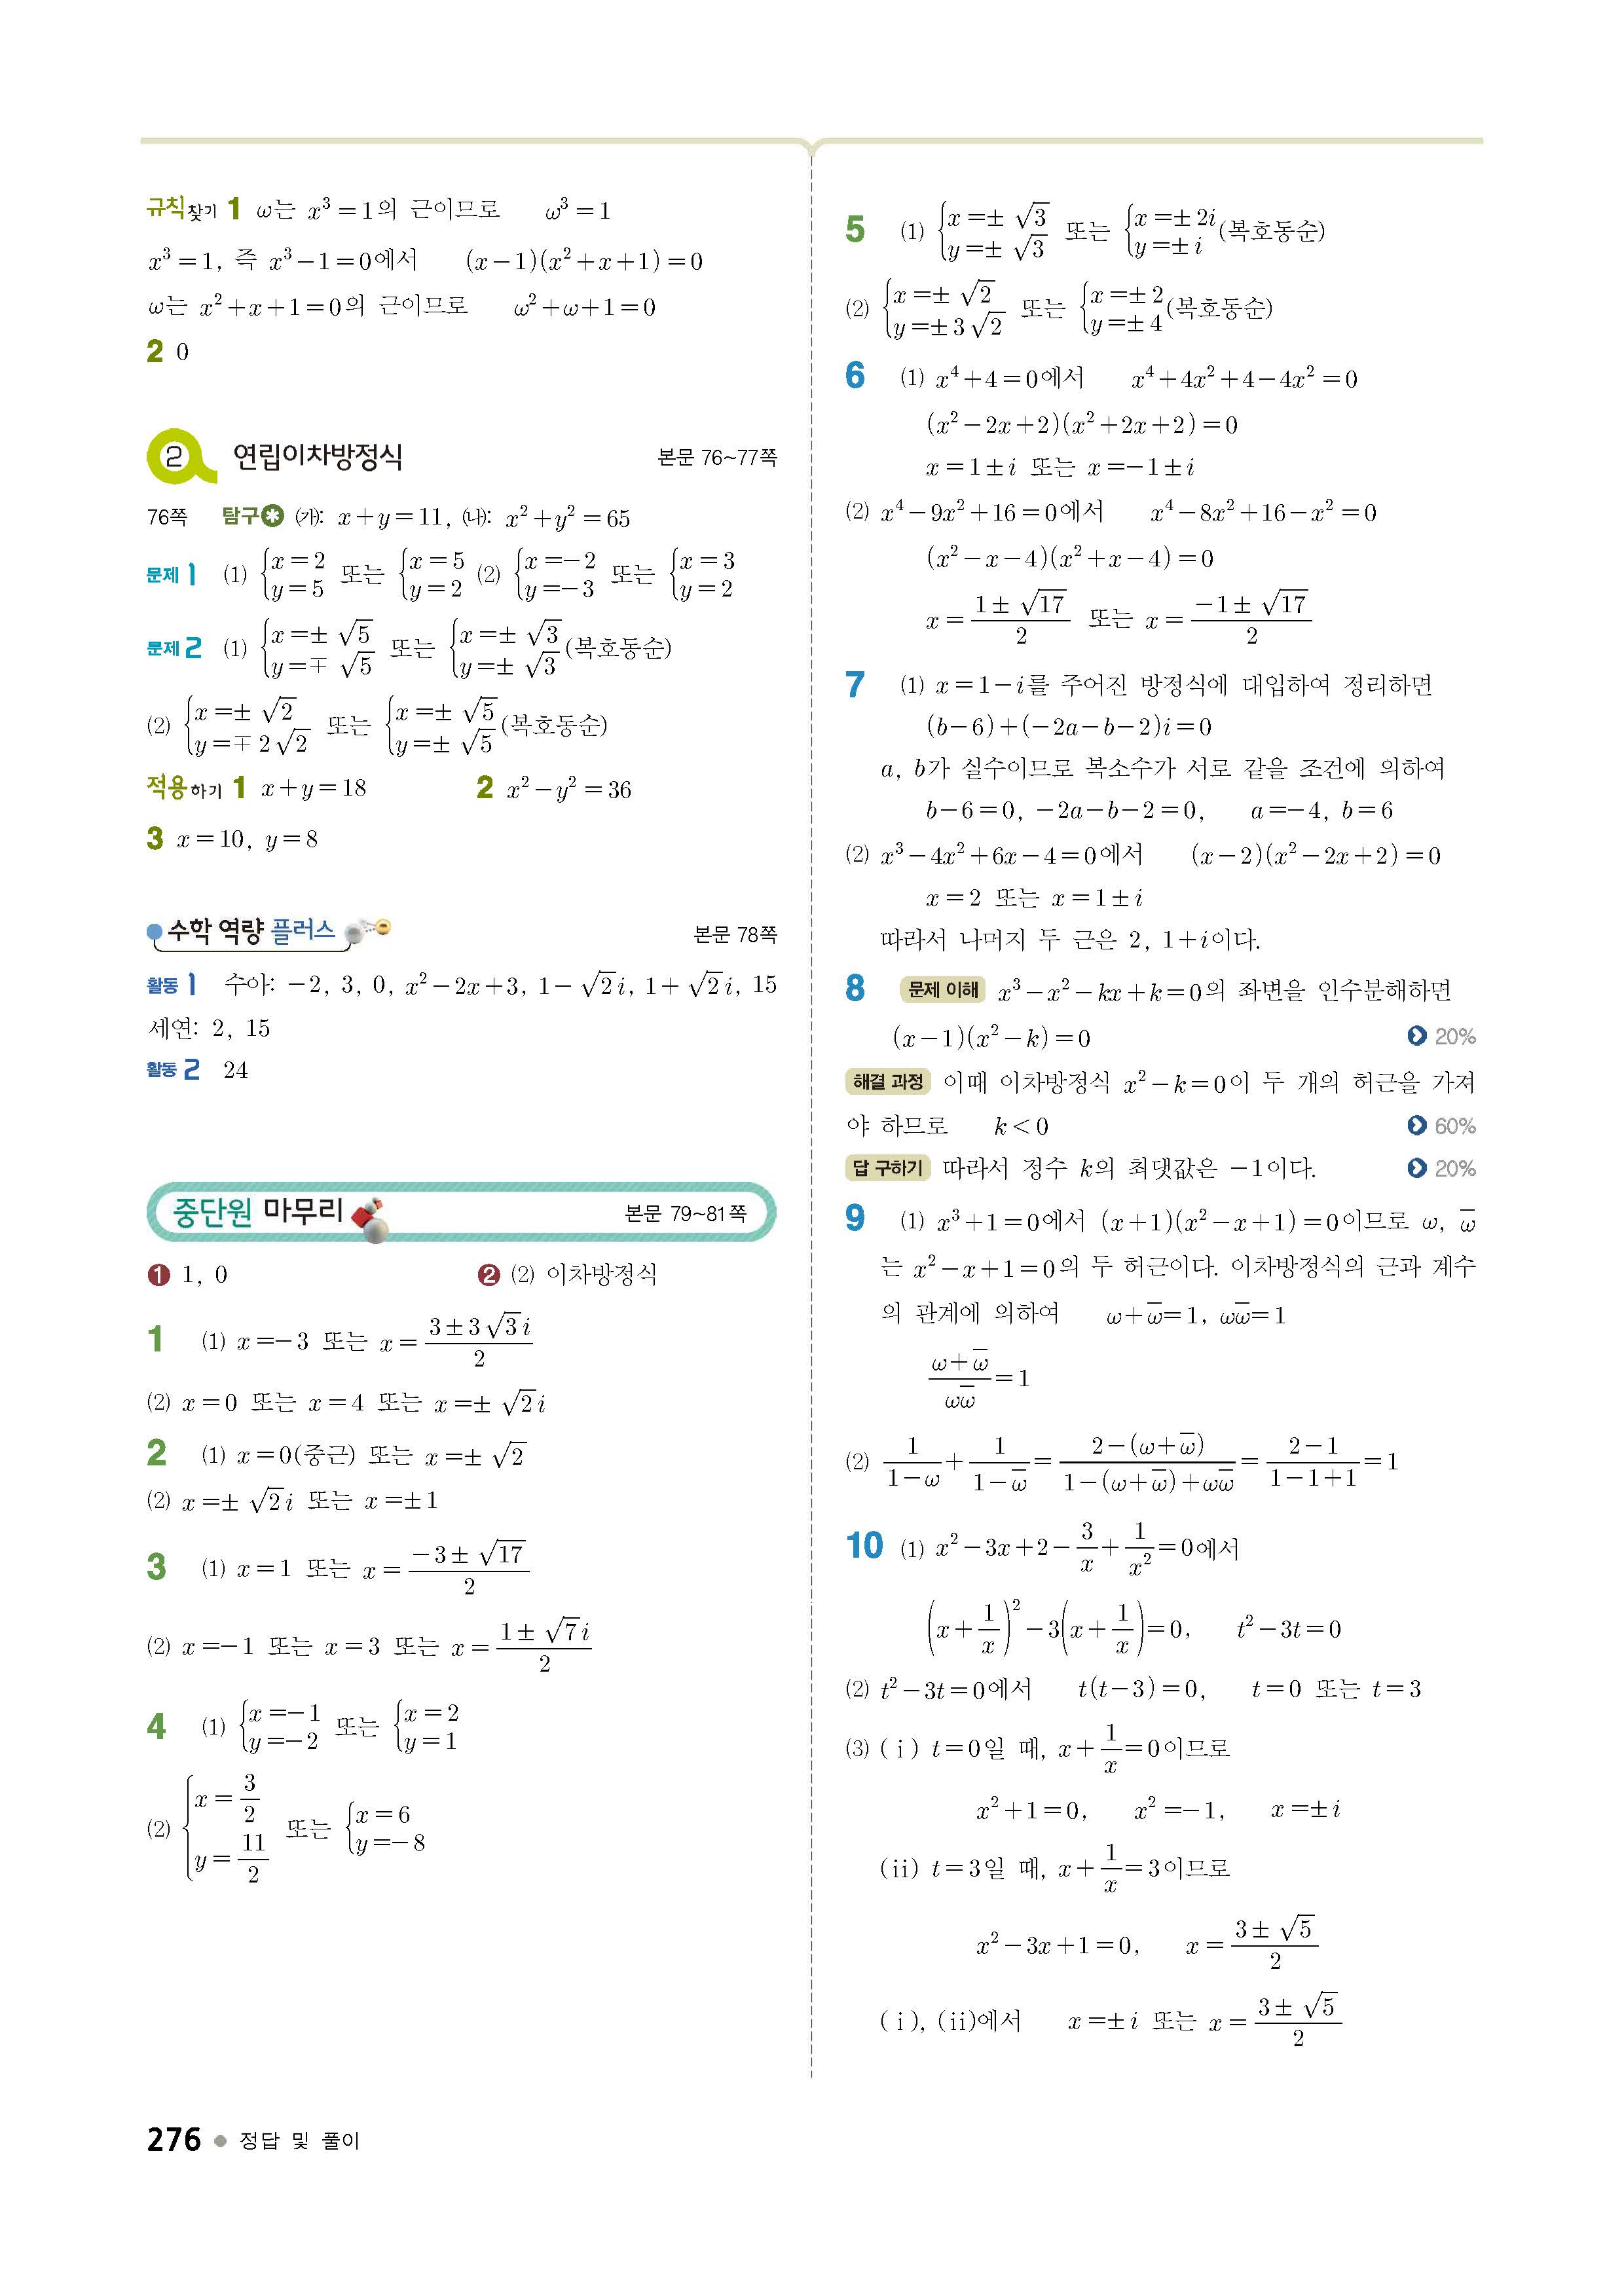 규칙찾기 1 ω는 x³=1의 근이므로 ω³=1
x³=1, 즉 x³-1=0에서 (x-1)(x²+x+1)=0
ω는 x²+x+1=0의 근이므로 ω²+ω+1=0
2 0
2 연립이차방정식 본문 76~77쪽
76쪽 탐구 ㈎: x+y=11, ㈏: x²+y²=65
문제 1 (1) {x=2, y=5 또는 {x=5, y=2 (2) {x=-2, y=-3 또는 {x=3, y=2
문제 2 (1) {x=±√5, y=∓√5 또는 {x=±√3, y=±√3 (복호동순)
(2) {x=±√2, y=∓2√2 또는 {x=±√5, y=±√5 (복호동순)
적용하기 1 x+y=18 2 x²-y²=36
3 x=10, y=8
수학 역량 플러스 본문 78쪽
활동 1 수아: -2, 3, 0, x²-2x+3, 1-√2i, 1+√2i, 15
세연: 2, 15
활동 2 24
중단원 마무리 본문 79~81쪽
❶ 1, 0 ❷ (2) 이차방정식
1 (1) x=-3 또는 x=(3±3√3i)/2
(2) x=0 또는 x=4 또는 x=±√2i
2 (1) x=0(중근) 또는 x=±√2
(2) x=±√2i 또는 x=±1
3 (1) x=1 또는 x=(-3±√17)/2
(2) x=-1 또는 x=3 또는 x=(1±√7i)/2
4 (1) {x=-1, y=-2 또는 {x=2, y=1
(2) {x=3/2, y=11/2 또는 {x=6, y=-8
5 (1) {x=±√3, y=±√3 또는 {x=±2i, y=±i (복호동순)
(2) {x=±√2, y=±3√2 또는 {x=±2, y=±4 (복호동순)
6 (1) x⁴+4=0에서 x⁴+4x²+4-4x²=0
(x²-2x+2)(x²+2x+2)=0
x=1±i 또는 x=-1±i
(2) x⁴-9x²+16=0에서 x⁴-8x²+16-x²=0
(x²-x-4)(x²+x-4)=0
x=(1±√17)/2 또는 x=(-1±√17)/2
7 (1) x=1-i를 주어진 방정식에 대입하여 정리하면
(b-6)+(-2a-b-2)i=0
a, b가 실수이므로 복소수가 서로 같을 조건에 의하여
b-6=0, -2a-b-2=0, a=-4, b=6
(2) x³-4x²+6x-4=0에서 (x-2)(x²-2x+2)=0
x=2 또는 x=1±i
따라서 나머지 두 근은 2, 1+i이다.
8 문제 이해 x³-x²-kx+k=0의 좌변을 인수분해하면
(x-1)(x²-k)=0 20%
해결 과정 이때 이차방정식 x²-k=0이 두 개의 허근을 가져
야 하므로 k<0 60%
답 구하기 따라서 정수 k의 최댓값은 -1이다. 20%
9 (1) x³+1=0에서 (x+1)(x²-x+1)=0이므로 ω, ω̅
는 x²-x+1=0의 두 허근이다. 이차방정식의 근과 계수
의 관계에 의하여 ω+ω̅=1, ωω̅=1
(ω+ω̅)/(ωω̅)=1
(2) 1/(1-ω)+1/(1-ω̅)=(2-(ω+ω̅))/(1-(ω+ω̅)+ωω̅)=(2-1)/(1-1+1)=1
10 (1) x²-3x+2-3/x+1/x²=0에서
(x+1/x)²-3(x+1/x)=0, t²-3t=0
(2) t²-3t=0에서 t(t-3)=0, t=0 또는 t=3
(3) (ⅰ) t=0일 때, x+1/x=0이므로
x²+1=0, x²=-1, x=±i
(ⅱ) t=3일 때, x+1/x=3이므로
x²-3x+1=0, x=(3±√5)/2
(ⅰ), (ⅱ)에서 x=±i 또는 x=(3±√5)/2
276 정답 및 풀이